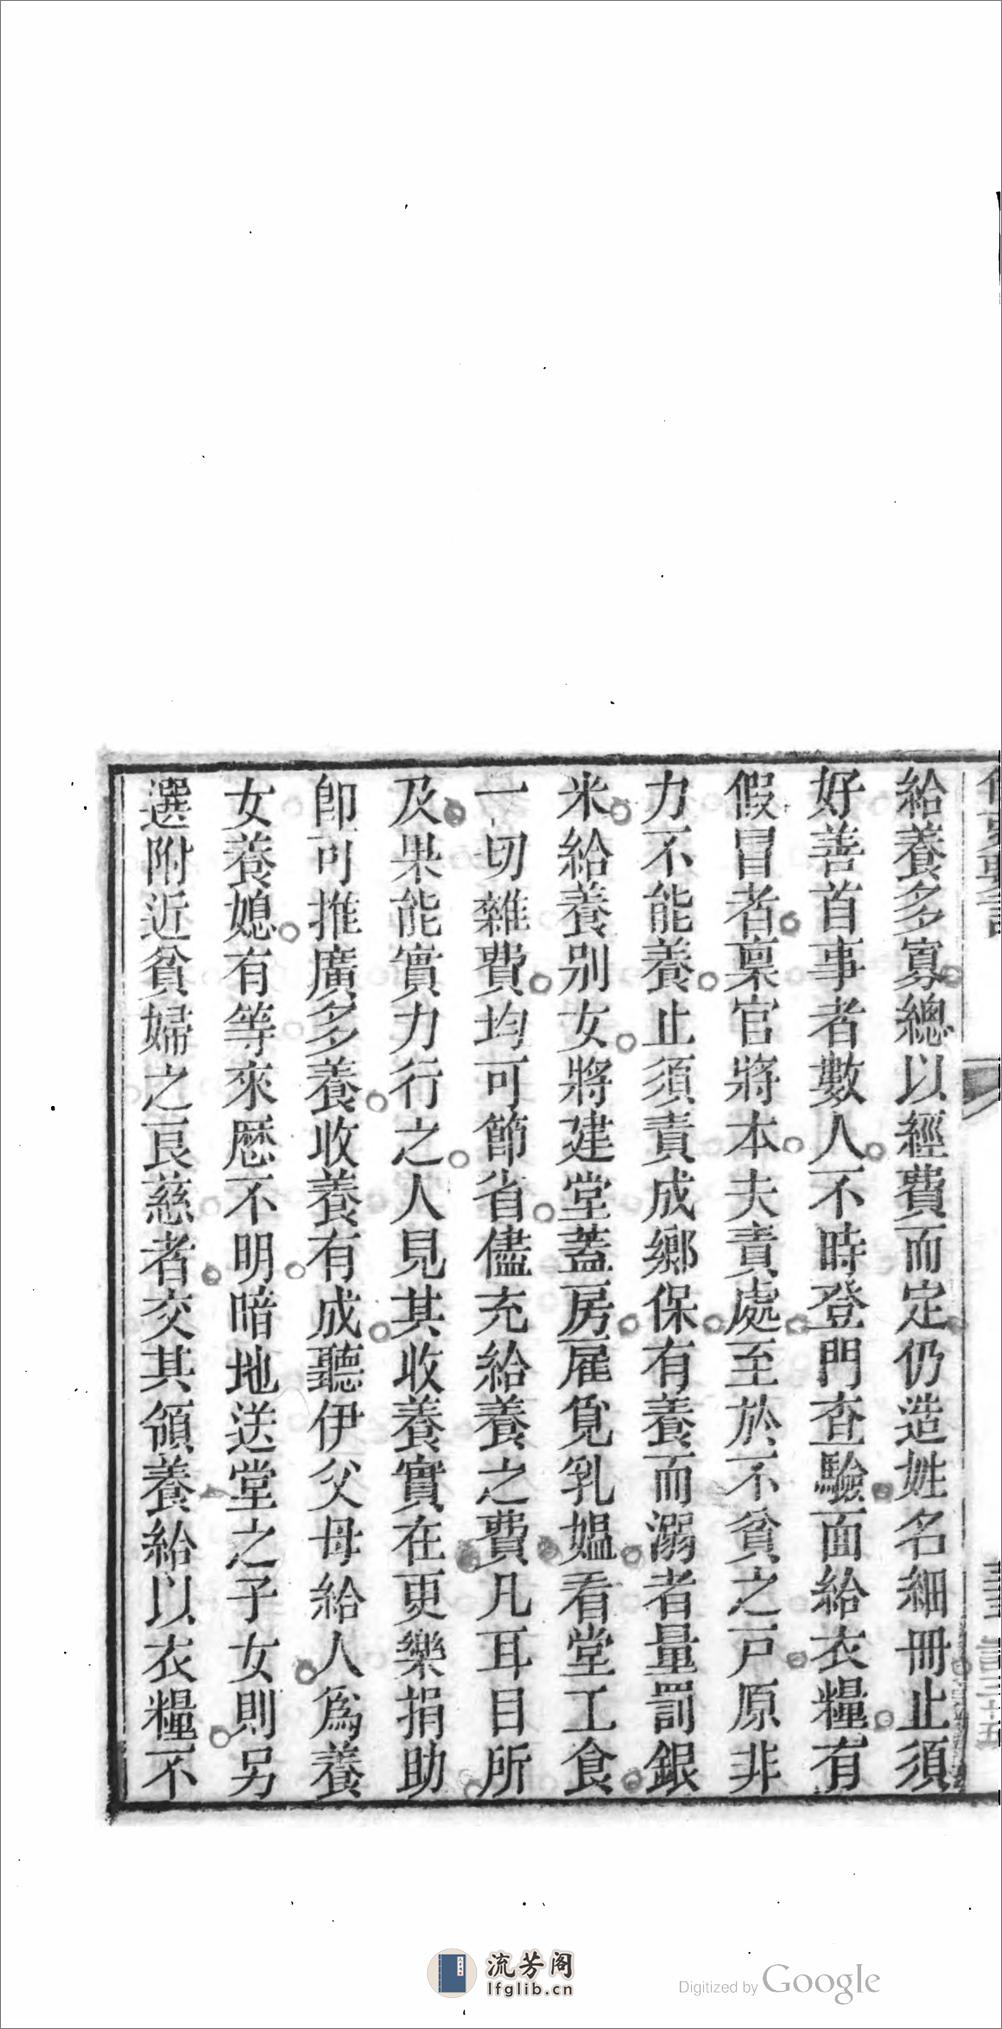 給養多寡總以經費而定仍造姓名細冊止須
好善首事者數人不時登門查驗面給衣糧有
假冒者稟官將本夫責處至於不貧之戶原非
力不能養止須責成鄉保有養而溺者量罰銀
米給養別女將建堂蓋房雇覓乳媼看堂工食
一切雜費均可節省儘充給養之費凡耳目所
及果能實力行之人見其收養實在更樂捐助
卽可推廣多養收養有成聽伊父母給人爲養
女養媳有等來厯不明暗地送堂之子女則另
選附近貧婦之良慈者交其領養給以衣糧不
流芳阁
lfglib.cn
Digitized by Google